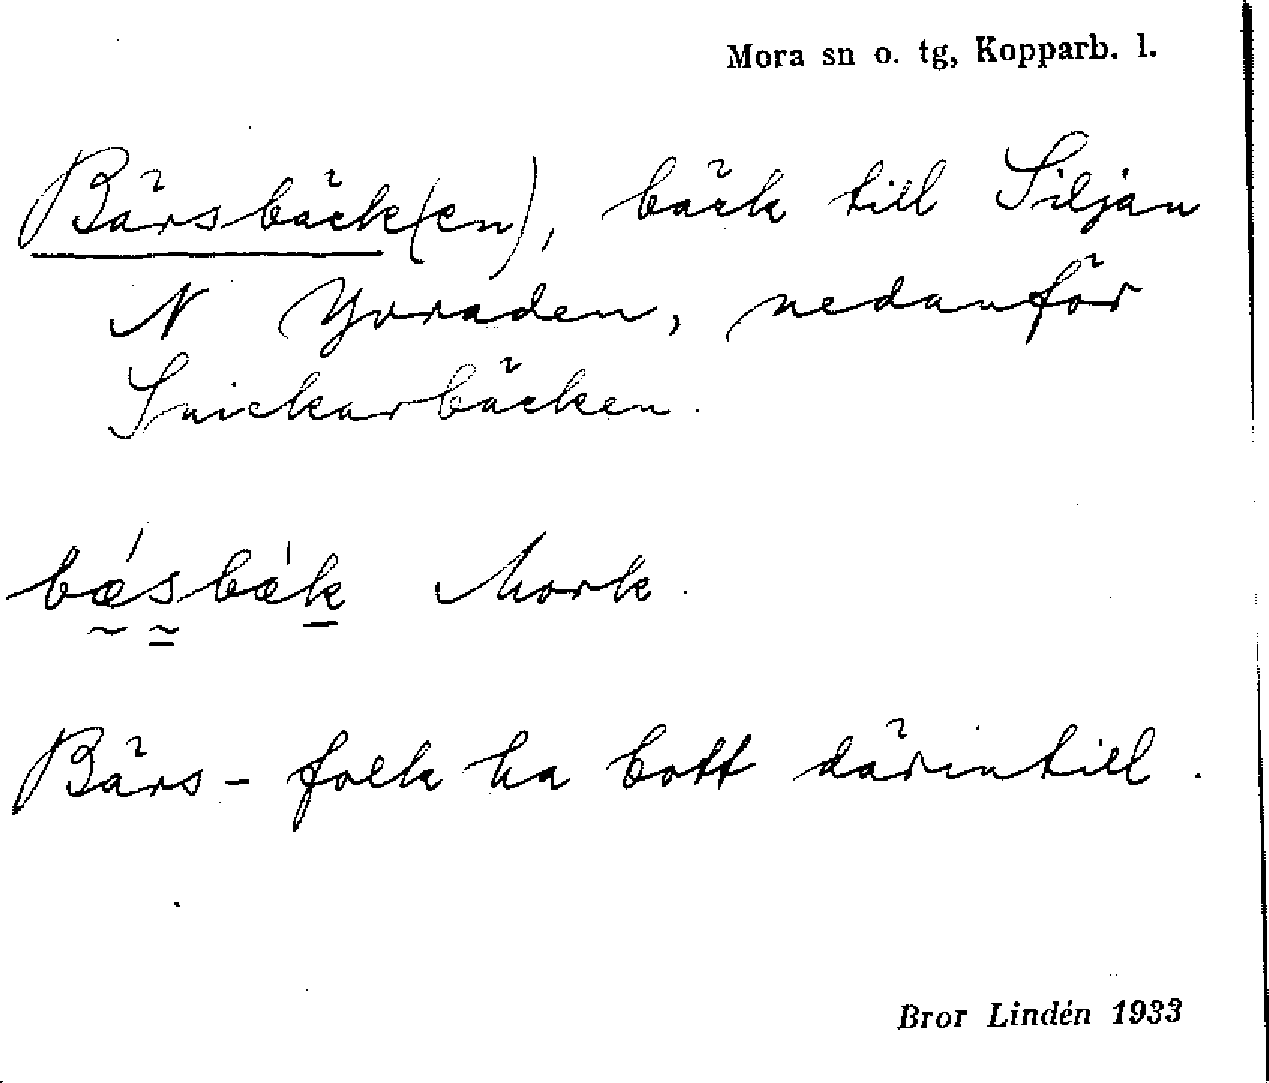 Mora sn o. tg, Kopparb. l.
Bärsbäck(en), bäck till Siljan
N Yvraden, nedanför
Snickarbäcken.
bǽsbǽk Mork.
Bärs-folk ha bott därintill.
Bror Lindén 1933